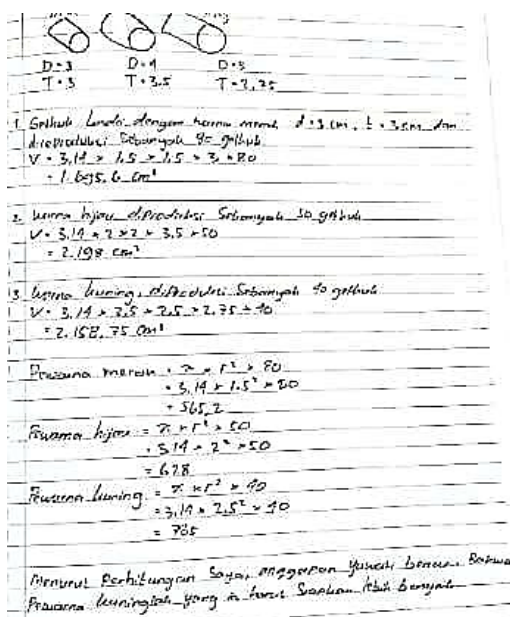 D = 3 D = 4 D = 5
T = 3 T = 3.5 T = 2,75
1 dengan warna merah d = 3 cm, t = 3 cm dan
diproduksi Sebanyak 80
V = 3,14 × 1,5 × 1,5 × 3 × 80
= 1.695,6 cm³
2. warna hijau diproduksi Sebanyak 50
V = 3.14 × 2 × 2 × 3.5 × 50
= 2.198 cm³
3 warna kuning, diproduksi Sebanyak 40
V = 3,14 × 2,5 × 2,5 × 2,75 × 40
= 2.158,75 cm³
Pewarna merah = π × r² × 80
= 3,14 × 1.5² × 80
= 565,2
Pewarna hijau = π × r² × 50
= 3.14 × 2² × 50
= 628
Pewarna kuning = π × r² × 40
= 3,14 × 2,5² × 40
= 785
Menurut Perhitungan Saya, anggapan benar. Bahwa
Pewarna kuninglah yang ia harus Siapkan lebih banyak